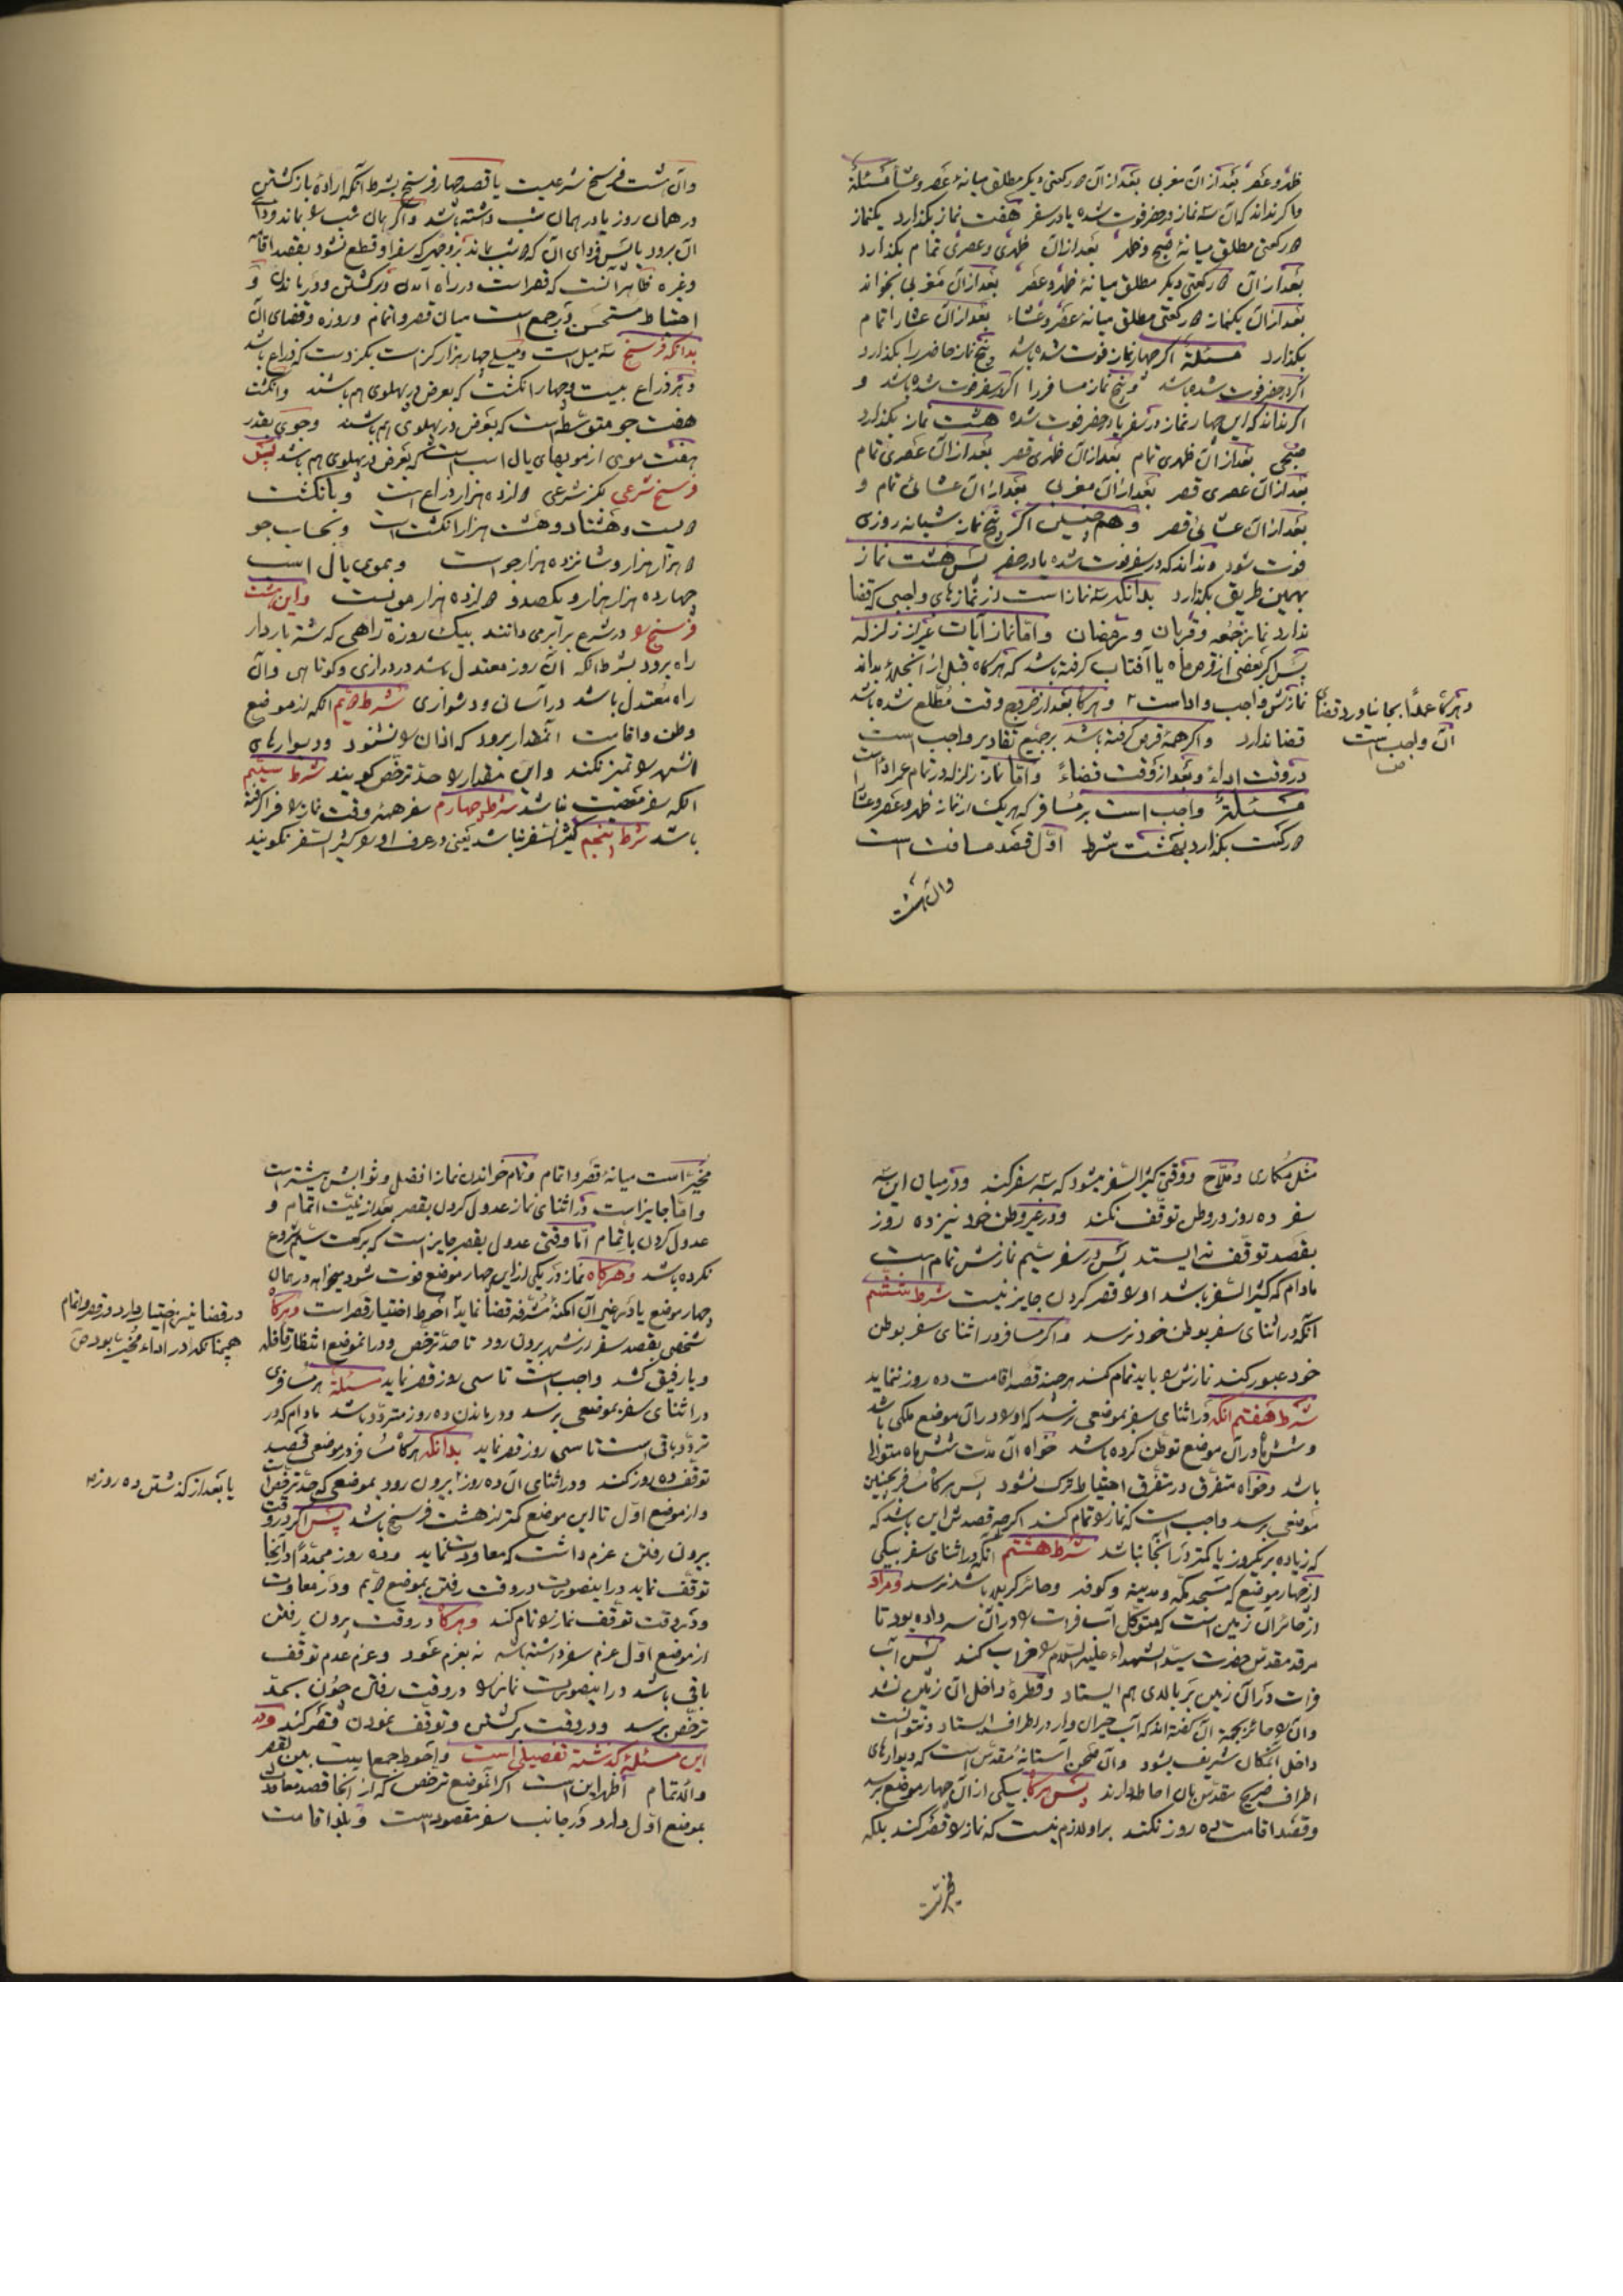 ظهر و عصر بعد از آن مغربی بعد از آن دو رکعتی دیگر مطلق میانهٔ عصر و عشا مسئلة
و اگر نداند که آن سه نماز در حضر فوت شده یا در سفر هفت نماز بگذارد یکنماز
دو رکعتی مطلق میانهٔ صبح و ظهر بعد از آن ظهری و عصری تمام بگذارد
بعد از آن دو رکعتی دیگر مطلق میانهٔ ظهر و عصر بعد از آن مغربی بخواند
بعد از آن یکنماز دو رکعتی مطلق میانهٔ عصر و عشاء بعد از آن عشا را تمام
بگذارد مسئلة اگر چهار نماز فوت شده باشد پنج نماز حاضر را بگذارد
اگر در حضر فوت شده باشد و پنج نماز مسافر را اگر در سفر فوت شده باشد و
اگر نداند که این چهار نماز در سفر یا در حضر فوت شده هشت نماز بگذارد
صبحی بعد از آن ظهری تمام بعد از آن ظهری قصر بعد از آن عصری تمام
بعد از آن عصری قصر بعد از آن مغربی بعد از آن عشائی تمام و
بعد از آن عشائی قصر و همچنین اگر پنج نماز شبانه روزی
فوت شود و نداند که در سفر فوت شده یا در حضر پس هشت نماز
بهمین طریق بگذارد بدانکه سه نماز است از نمازهای واجبی که قضا
ندارد نماز جمعه و قربان و رمضان و امّا نماز آیات غیر از زلزله
پس اگر بعضی از قرص ماه یا آفتاب گرفته باشد که هرگاه قبل از انجلاء بداند
نمازش واجب و اداست ۲ و هرگاه بعد از خروج وقت مطلع شده باشد
قضا ندارد و اگر همهٔ قرص گرفته باشد بر جمیع تقادیر واجب است
در وقت اداءً و بعد از وقت قضاءً و امّا نماز زلزله در تمام عمر اداست
مسئلة واجب است بر مسافر که هر یک از نماز ظهر و عصر و عشا را
دو رکعت بگذارد بهشت شرط اوّل قصد مسافت است
و آن هشت
و هرگاه عمداً بجا نیاورد قضای
آن واجب است
و آن هشت فرسخ شرعیست یا قصد چهار فرسخ بشرط آنکه اراده بازگشتن
در همان روز یا در همان شب داشته باشد و اگر همان شب را بماند و فردای
آن برود یا پس فردای آن که دو شب بماند بر وجهی که سفر او قطع نشود بقصد اقامه
و غیره ظاهر آنست که قصر است در راه آمدن و برگشتن و در ماندن و
احتیاط مستحسن در جمع است میان قصر و اتمام و روزه و قضای آن
بدانکه فرسخ سه میل است و میلی چهار هزار گز است بگز دست که ذراع باشد
و هر ذراع بیست و چهار انگشت که بعرض در پهلوی هم باشند و انگشت
هفت جو متوسّط است که بعرض در پهلوی هم باشند و جوی بقدر
هفت موی از مویهای یال اسب است که بعرض در پهلوی هم باشد پس
فرسخ شرعی بگز شرعی دوازده هزار ذراع است و بانگشت
دویست و هشتاد و هشت هزار انگشت است و بحساب جو
دو هزار هزار و شانزده هزار جو است و بموی یال اسب
چهارده هزار هزار و یکصد و دوازده هزار مویست و این هشت
فرسخ را در شرع برابر می دانند بیک روزه راهی که شتر باردار
راه برود بشرط آنکه آن روز معتدل باشد در درازی و کوتاهی و آن
راه معتدل باشد در آسانی و دشواری شرط دویّم آنکه از موضع
وطن و اقامت آنمقدار برود که اذان را نشنود و دیوارهای
آنشهر را تمیز نکند و این مقدار را حدّ ترخّص گویند شرط سیّم
آنکه سفر معصیت نباشد شرط چهارم سفر همهٔ وقت نماز را فرا گرفته
باشد شرط پنجم کثیر السّفر نباشد یعنی در عرف او را کثیر السّفر نگویند
مثل مکاری و ملّاح و وقتی کثیر السّفر میشود که سه سفر کند و در میان این سه
سفر ده روز در وطن توقّف نکند و در غیر وطن خود نیز ده روز
بقصد توقّف نه ایستد پس در سفر سیّم نمازش تمام است
مادام که کثیر السّفر باشد او را قصر کردن جایز نیست شرط ششم
آنکه در اثنای سفر بوطن خود نرسد و اگر مسافر در اثنای سفر بوطن
خود عبور کند نمازش را باید تمام کند هر چند قصد اقامت ده روز ننماید
شرط هفتم آنکه در اثنای سفر بموضعی نرسد که او را در آن موضع ملکی باشد
و شش ماه در آن موضع توطّن کرده باشد خواه آن مدّت شش ماه متوالی
باشد و خواه متفرّق در متفرّق احتیاط ترک نشود پس هرگاه مسافر بچنین
موضعی برسد واجب است که نماز را تمام کند اگر چه قصدش این باشد که
که زیاده بر یکروز یا کمتر در آنجا نباشد شرط هشتم آنکه در اثنای سفر بیکی
از چهار موضع که مسجد مکّه و مدینه و کوفه و حائر کربلا باشد نرسد و مراد
از حائر آن زمین است که متوکّل آب فرات را در آن سر داده بود تا
مرقد مقدّس حضرت سیّد الشهداء علیه السّلام را خراب کند پس آب
فرات در آن زمین بر بالای هم ایستاد و قطرهٔ داخل آن زمین نشد
و آن را حائر بجهة آن گفته اند که آب حیران وار در اطراف ایستاد و نتوانست
داخل آنمکان شریف بشود و آن صحن آستانهٔ مقدّس است که دیوارهای
اطراف ضریح مقدّس بآن احاطه دارند پس هرگاه بیکی از آن چهار موضع برسد
و قصد اقامت ده روز نکند بر او لازم نیست که نماز را قصر کند بلکه
مخیّر است
مخیّر است میانهٔ قصر و اتمام و تمام خواندن نماز افضل و ثوابش بیشتر است
و امّا جایز است در اثنای نماز عدول کردن بقصر بعد از نیّت اتمام و
عدول کردن باتمام امّا وقتی عدول بقصر جایز است که برکعت سیّم شروع
نکرده باشد و هرگاه نماز در یکی از این چهار موضع فوت شود میخواهد در همان
چهار موضع یا در غیر آن امکنهٔ مشرّفه قضا نماید ۲ احوط اختیار قصر است و هرگاه
شخصی بقصد سفر از شهر بیرون رود تا حدّ ترخّص و در آنموضع انتظار قافله
و یا رفیق کشد واجب است تا سی روز قصر نماید مسئلة هر مسافری
در اثنای سفر بموضعی برسد و در ماندن ده روز متردّد باشد مادام که در
تردّد باقی است تا سی روز قصر نماید بدانکه هرگاه مسافر در موضعی قصد
توقّف ده روز کند و در اثنای آن ده روز ۲ بیرون رود بموضعی که حدّ ترخّص است
و از موضع اوّل تا این موضع کمتر از هشت فرسخ باشد پس اگر در وقت
بیرون رفتن عزم داشت که معاودت نماید و ده روز مجدّداً در آنجا
توقّف نماید در اینصورت در وقت رفتن بموضع دویّم و در معاودت
و در وقت توقّف نماز را تمام کند و هرگاه در وقت بیرون رفتن
از موضع اوّل عزم سفر داشته باشد نه بعزم عود و عزم عدم توقّف
باقی باشد در اینصورت نماز را در وقت رفتن چون بحدّ
ترخّص برسد و در وقت برگشتن و توقّف نمودن قصر کند و در
این مسئلهٔ گذشته تفصیلی است و احوط جمعا بین القصر
و الاتمام اظهر این است اگر آنموضع ترخّص که از آنجا قصد معاودت
بموضع اوّل دارد در جانب سفر مقصود است و بلد اقامت
در قضا نیز اختیار دارد در قصر و اتمام
همچنانکه در اداء مخیّر بود ص
یا بعد از گذشتن ده روز ۲